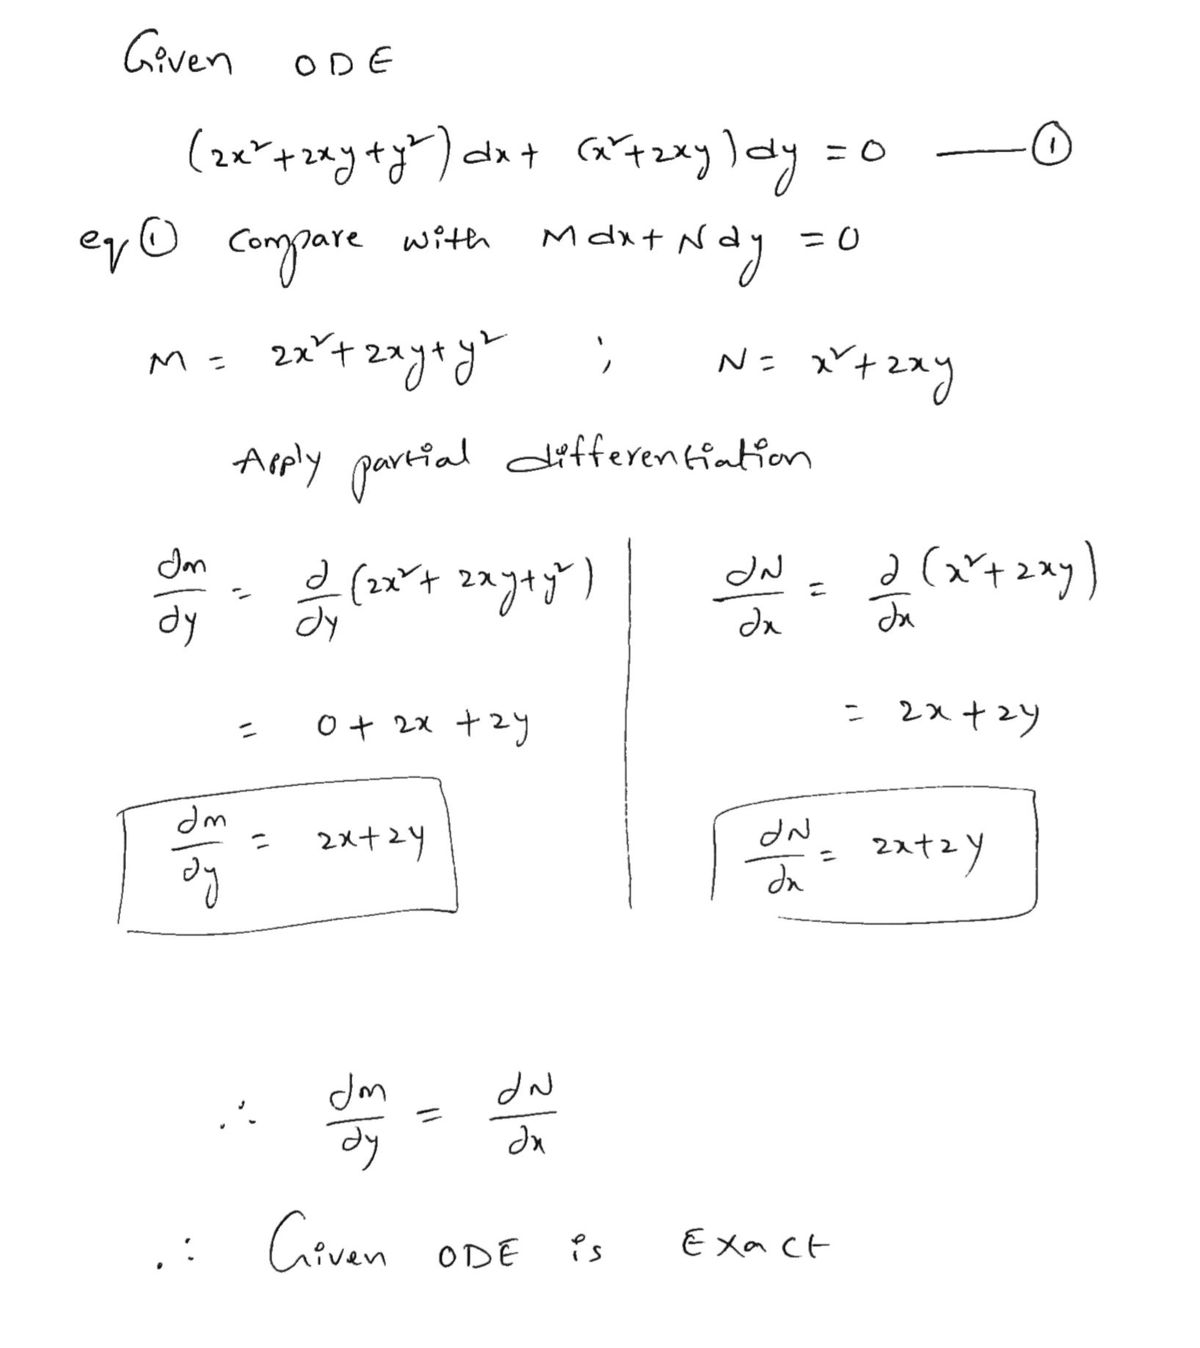 Given ODE
(2x²+2xy+y²)dx+ (x²+2xy)dy =0 —①
eq① Compare with Mdx+Ndy =0
M = 2x²+2xy+y² ; N= x²+2xy
Apply partial differentiation
∂m/∂y = ∂/∂y (2x²+2xy+y²) ∂N/∂x = ∂/∂x (x²+2xy)
= 0+2x+2y = 2x+2y
∂m/∂y = 2x+2y ∂N/∂x = 2x+2y
∴ ∂m/∂y = ∂N/∂x
∴ Given ODE is Exact